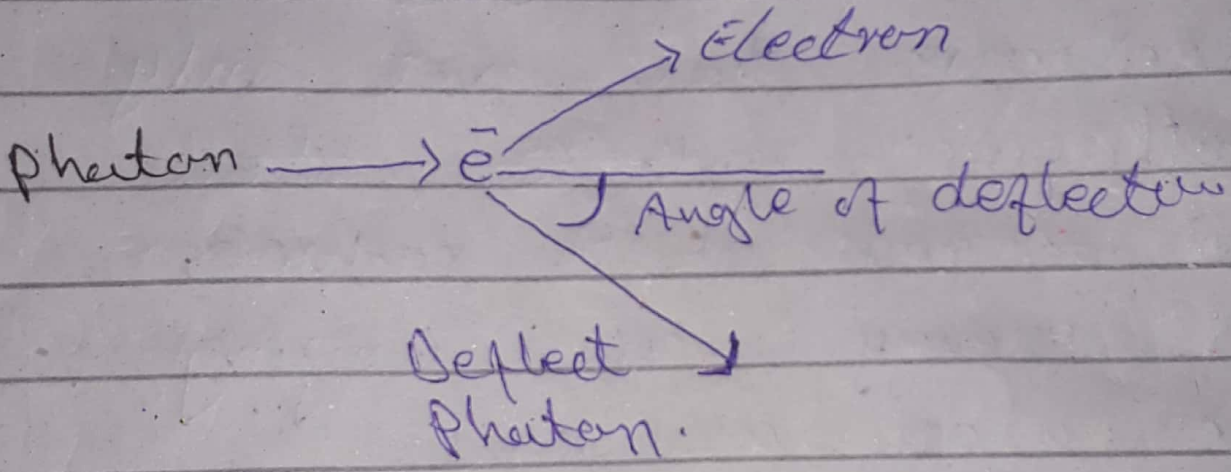 Electron
Photon → ē
Angle of deflection
Deflect
Photon.